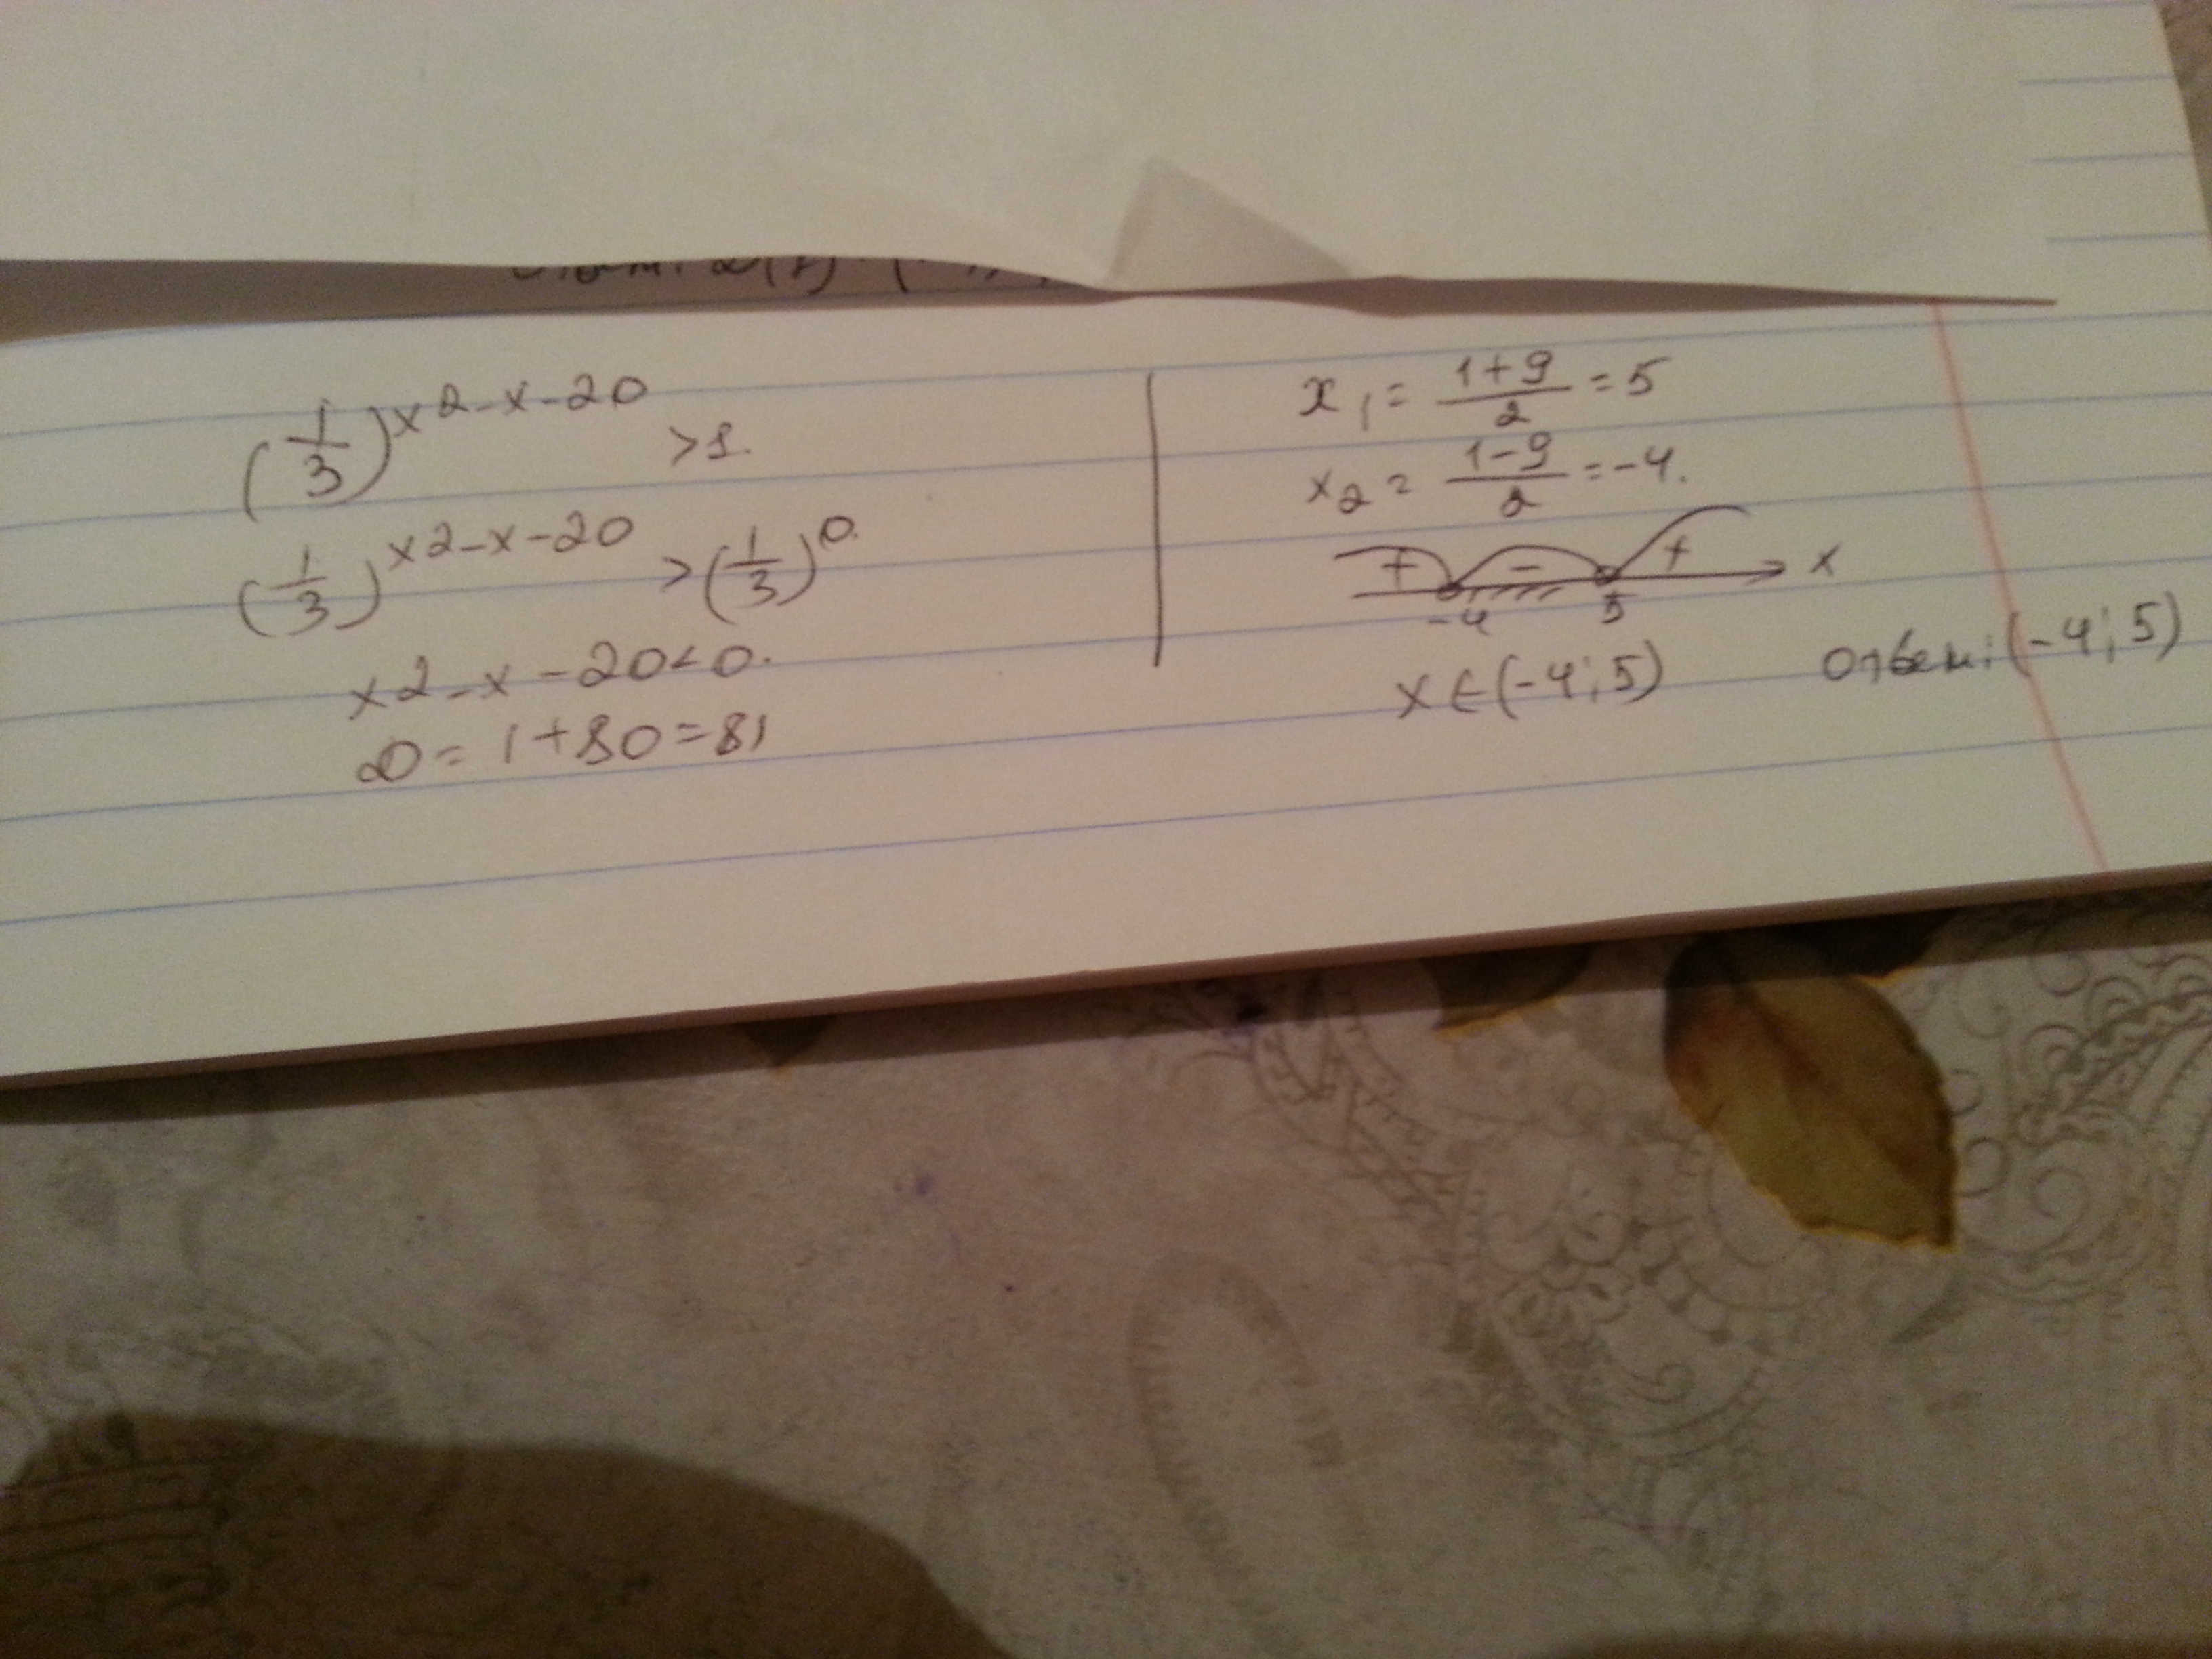 (1/3)^x2-x-20 >1.
(1/3)^x2-x-20 >(1/3)^0.
x2-x-20<0.
D=1+80=81
x1=1+9/2=5
x2=1-9/2=-4.
+ - + x
-4 5
x∈(-4;5) Ответ:(-4;5)